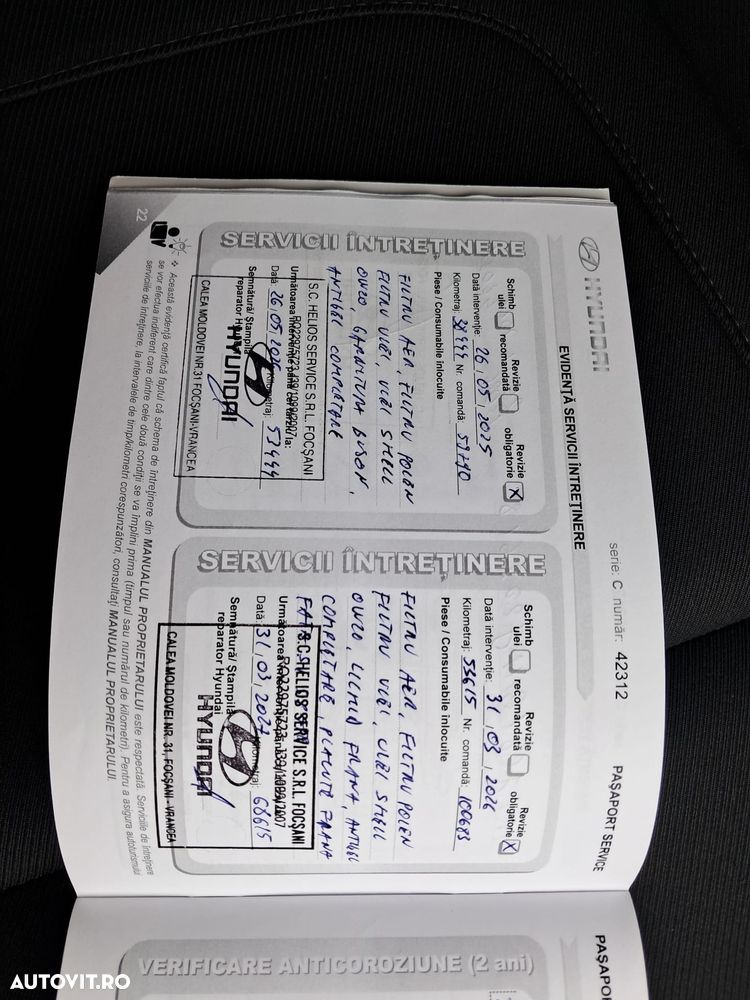 HYUNDAI
serie: C număr: 42312
PAȘAPORT SERVICE
EVIDENȚĂ SERVICII ÎNTREȚINERE
SERVICII ÎNTREȚINERE
Schimb ulei
Revizie recomandată
Revizie obligatorie X
Dată intervenție: 26, 05, 2025
Kilometraj: Nr. comandă:
Piese / Consumabile înlocuite
FILTRU AER, FILTRU POLEN
FILTRU ULEI, ULEI SHELL
OW20, GARNITURA BUSON,
ANTIGEL COMPLETARE
S.C. HELIOS SERVICE S.R.L. FOCȘANI
RO22975723, J39/1089/2007
Următoarea intervenție până cel târziu la:
Dată: 26, 05, 2026 Kilometraj: 53444
Semnătură/ Ștampilă
reparator Hyundai
HYUNDAI
CALEA MOLDOVEI NR.31 FOCȘANI-VRANCEA
SERVICII ÎNTREȚINERE
Schimb ulei
Revizie recomandată
Revizie obligatorie X
Dată intervenție: 31, 03, 2026
Kilometraj: 53615 Nr. comandă: 100683
Piese / Consumabile înlocuite
FILTRU AER, FILTRU POLEN
FILTRU ULEI, ULEI SHELL
OW20, LICHID FRANA, ANTIGEL
COMPLETARE, PLACUTE FRANA
S.C. HELIOS SERVICE S.R.L. FOCȘANI
RO22975723, J39/1089/2007
Următoarea intervenție până
Dată: 31, 03, 2027 Kilometraj: 68615
Semnătură/ Ștampilă
reparator Hyundai
HYUNDAI
CALEA MOLDOVEI NR. 31, FOCȘANI - VRANCEA
Această evidență certifică faptul că schema de întreținere din MANUALUL PROPRIETARULUI este respectată. Serviciile de întreținere
se vor efectua indiferent care dintre cele două condiții se va împlini prima (timpul sau numărul de kilometri). Pentru a asigura autoturismului
serviciile de întreținere, la intervalele de timp/kilometri corespunzători, consultați MANUALUL PROPRIETARULUI.
22
VERIFICARE ANTICOROZIUNE (2 ani)
AUTOVIT.RO